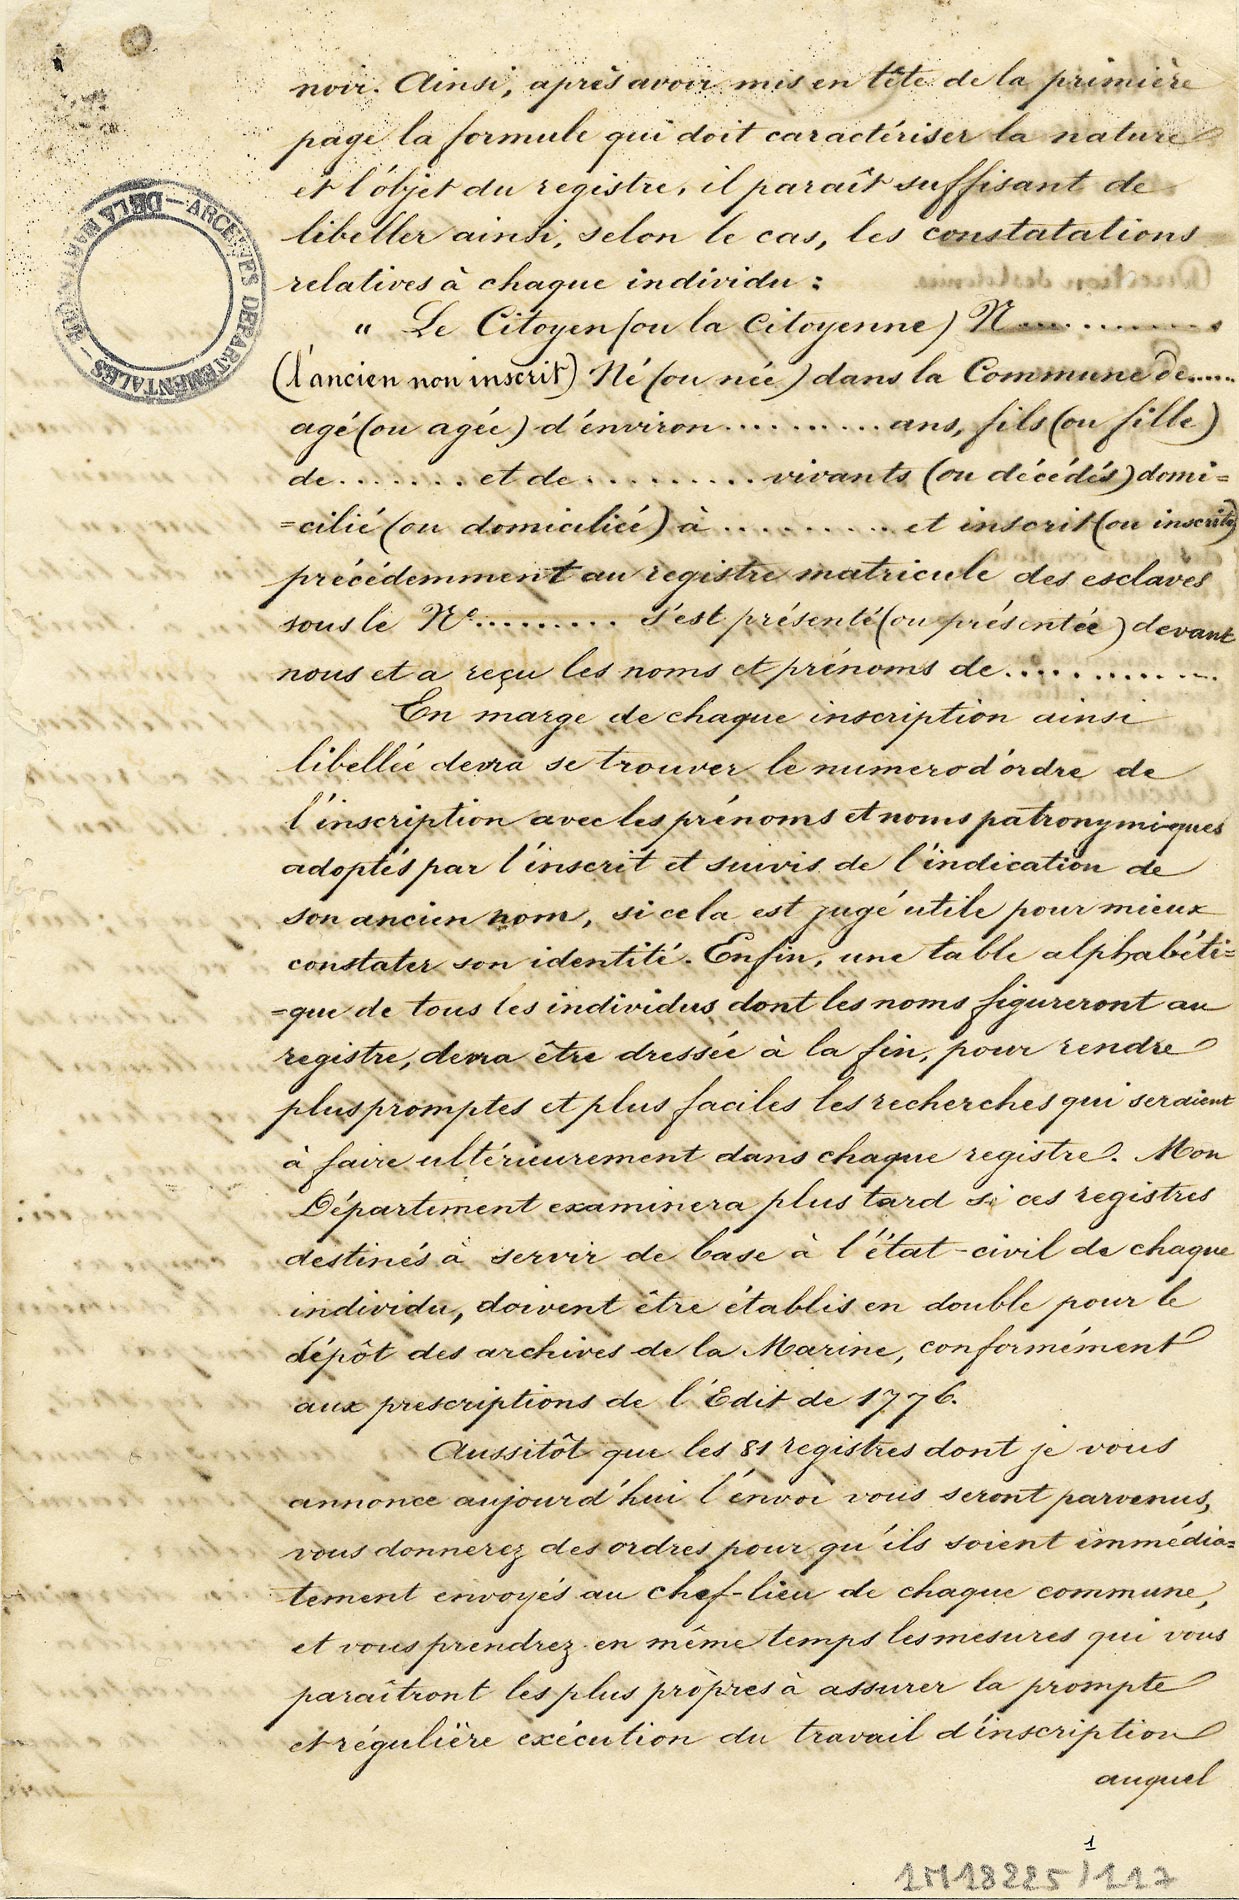 noir. Ainsi, après avoir mis en tête de la primière
page la formule qui doit caractériser la nature
et l'objet du registre, il paraît suffisant de
libeller ainsi, selon le cas, les constatations
relatives à chaque individu :
" Le Citoyen (ou la Citoyenne) N...........
(l'ancien non inscrit) Né (ou née) dans la Commune de......
agé (ou agée) d'environ.......... ans, fils (ou fille)
de....... et de ......... vivants (ou décédés) domi=
=cilié (ou domiciliée) à ......... et inscrit (ou inscrite)
précédemment au registre matricule des esclaves
sous le No......... s'est présenté (ou présentée) devant
nous et a reçu les noms et prénoms de............
En marge de chaque inscription ainsi
libellée devra se trouver le numero d'ordre de
l'inscription avec les prénoms et noms patronymiques
adoptés par l'inscrit et suivis de l'indication de
son ancien nom, si cela est jugé utile pour mieux
constater son identité. Enfin, une table alphabéti=
=que de tous les individus dont les noms figureront au
registre, devra être dressée à la fin, pour rendre
plus promptes et plus faciles les recherches qui seraient
à faire ultérieurement dans chaque registre. Mon
Département examinera plus tard si ces registres
destinés à servir de base à l'état-civil de chaque
individu, doivent être établis en double pour le
dépôt des archives de la Marine, conformément
aux prescriptions de l'Edit de 1776.
Aussitôt que les 81 registres dont je vous
annonce aujourd'hui l'énvoi vous seront parvenus,
vous donnerez des ordres pour qu'ils soient immédia=
tement envoyés au chef-lieu de chaque commune,
et vous prendrez en même temps les mesures qui vous
paraîtront les plus pròpres à assurer la prompte
et régulière exécution du travail d'inscription
auquel
ARCHIVES DEPARTEMENTALES - DE LA MARTINIQUE -
1M18225/117
1